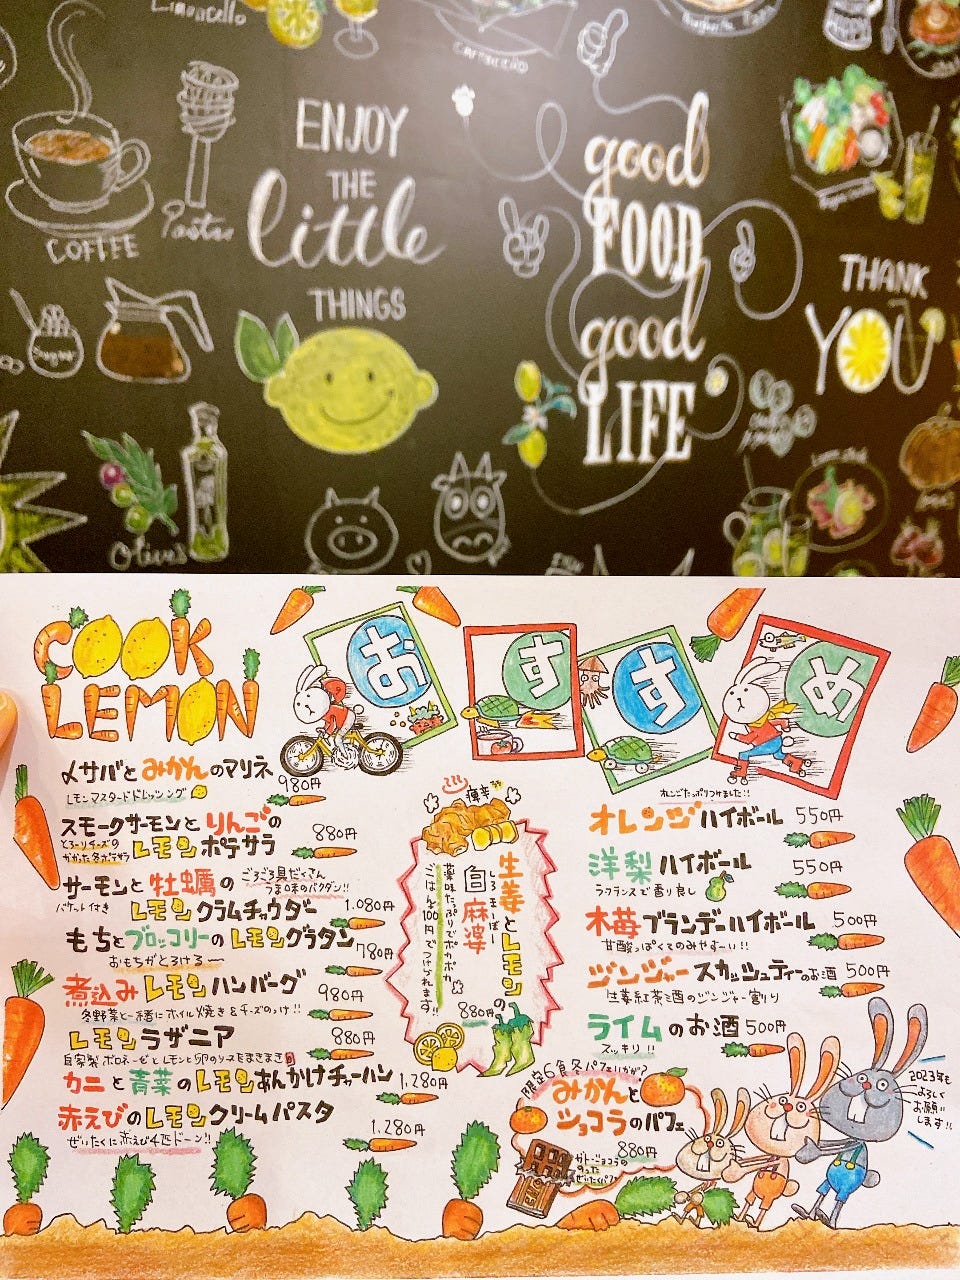 Limoncello
CAPPUCCINO
ENJOY
THE
little
THINGS
good
FOOD
good
LIFE
THANK
YOU
COFFEE
Pasta
Sugar
Olives
COOK
LEMON
おすすめ
〆サバとみかんのマリネ
レモンマスタードドレッシング
980円
スモークサーモンとりんごの
とろーりチーズの
かかった冬ポテサラ
レモンポテサラ
880円
サーモンと牡蠣の
ごろごろ具だくさん
うま味のバクダン!!
バケット付き
レモンクラムチャウダー
1.080円
もちとブロッコリーのレモングラタン
780円
おもちがとろける〜
煮込みレモンハンバーグ
980円
冬野菜と一緒にホイル焼き&チーズのっけ!!
レモンラザニア
880円
自家製ボロネーゼとレモンと卵のソースをまきまき
カニと青菜のレモンあんかけチャーハン
1,280円
赤えびのレモンクリームパスタ
1.280円
ぜいたくに赤えび4匹ドーン!!
痺辛
生姜とレモンの
しろまーぼー
白麻婆
薬味たっぷりでポカポカ
ごはん100円でつけれます!!
880円
オレンジたっぷりつけました!!
オレンジハイボール
550円
洋梨ハイボール
550円
ラフランスで香り良し
木苺ブランデーハイボール
500円
甘酸っぱくてのみやすーい!!
ジンジャースカッシュティーのお酒
500円
生姜紅茶酒のジンジャー割り
ライムのお酒
500円
スッキリ!!
限定6食冬パフェいかが?
みかんと
ショコラのパフェ
880円
ガトーショコラの
のった
ぜいたくパフェ
2023年も
よろしく
お願い
します!!